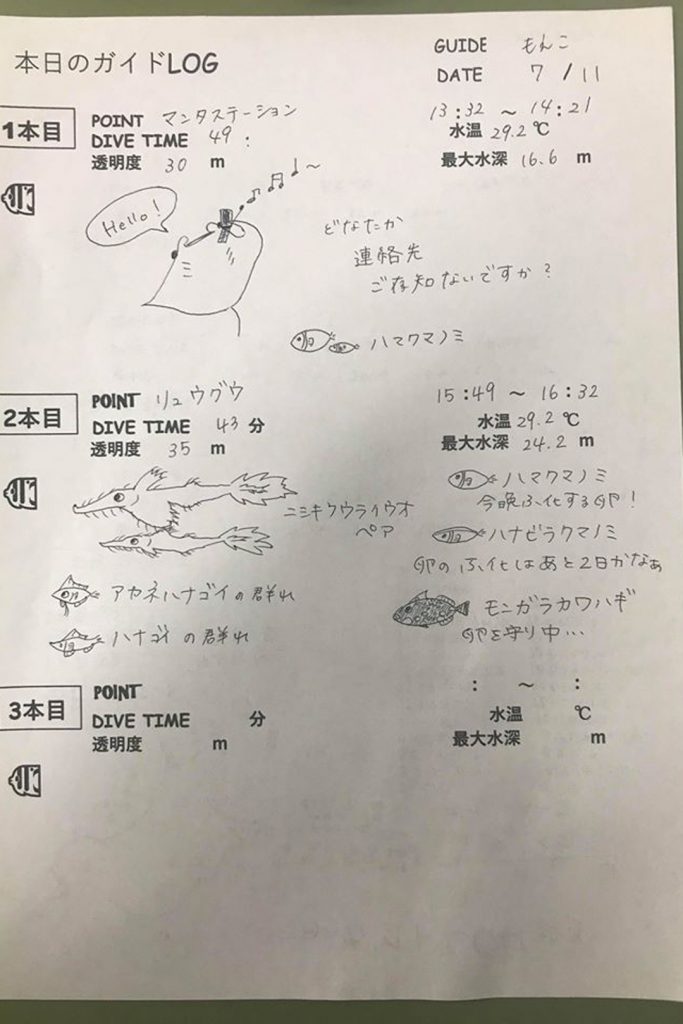 本日のガイドLOG
GUIDE もんこ
DATE 7 / 11
1本目
POINT マンタステーション
DIVE TIME 49 :
透明度 30 m
13:32 ～ 14:21
水温 29.2 ℃
最大水深 16.6 m
Hello!
どなたか
連絡先
ご存知ないですか?
ハマクマノミ
2本目
POINT リュウグウ
DIVE TIME 43 分
透明度 35 m
15:49 ～ 16:32
水温 29.2 ℃
最大水深 24.2 m
ニシキフウライウオ
ペア
アカネハナゴイの群れ
ハナゴイの群れ
ハマクマノミ
今晩ふ化する卵!
ハナビラクマノミ
卵のふ化はあと2日かなぁ
モンガラカワハギ
卵を守り中...
3本目
POINT
DIVE TIME 分
透明度 m
: ～ :
水温 ℃
最大水深 m